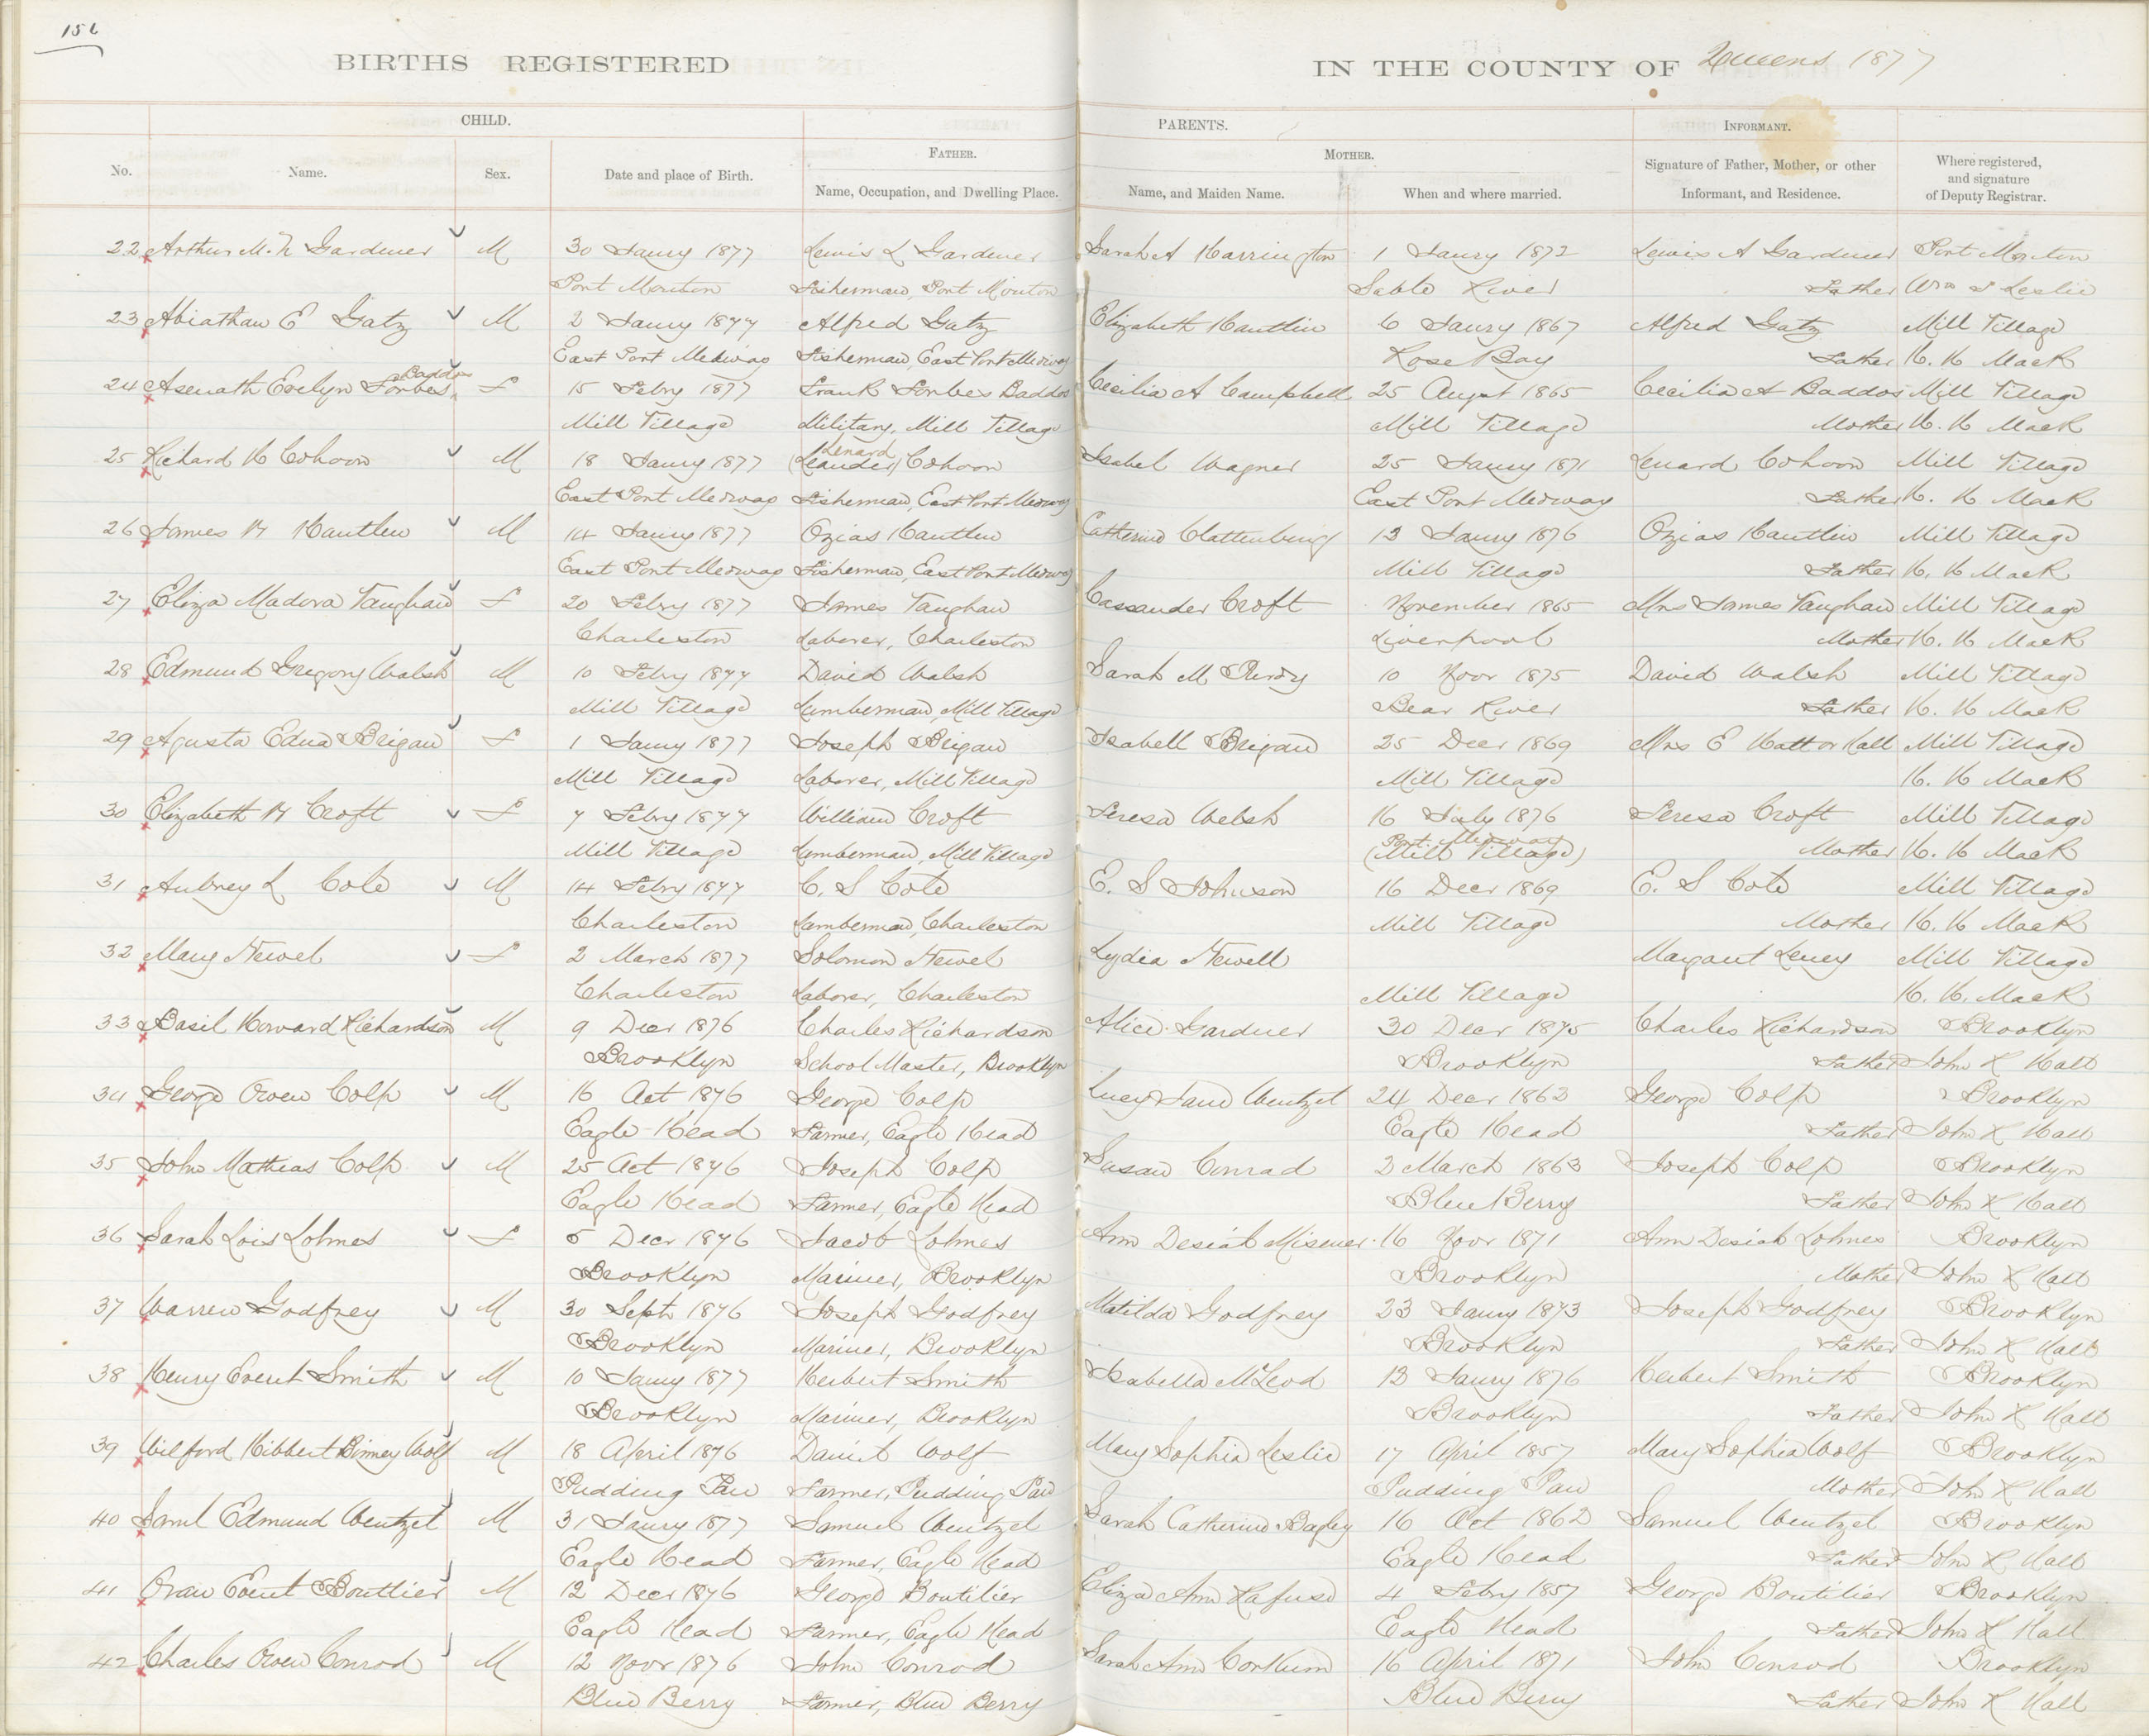 156
BIRTHS REGISTERED IN THE COUNTY OF Queens 1877
CHILD. PARENTS. INFORMANT.
FATHER. MOTHER.
No. Name. Sex. Date and place of Birth. Name, Occupation, and Dwelling Place. Name, and Maiden Name. When and where married. Signature of Father, Mother, or other Informant, and Residence. Where registered, and signature of Deputy Registrar.
22 Arthur M. N Gardener M 30 Jany 1877 Lewis L Gardener Sarah A Harrington 1 Jany 1872 Lewis A Gardener Port Mouton
Port Mouton Fisherman, Port Mouton Sable River Father Wm S Leslie
23 Abiathan E Gatz M 2 Jany 1877 Alfred Gatz Elizabeth Hautlin 6 Jany 1867 Alfred Gatz Mill Village
East Port Medway Fisherman, East Port Medway Rose Bay Father H. H Mack
24 Asenath Evelyn Forbes Baddos F 15 Febry 1877 Frank Forbes Baddos Cecilia A Campbell 25 Augst 1865 Cecilia A Baddos Mill Village
Mill Village Military, Mill Village Mill Village Mother H. H Mack
25 Richard H Cohoon M 18 Jany 1877 (Leander) Lenard Cohoon Isabel Wagner 25 Jany 1871 Lenard Cohoon Mill Village
East Port Medway Fisherman, East Port Medway East Port Medway Father H. H Mack
26 James M Hautlin M 14 Jany 1877 Ozias Hautlin Catherine Clattenburg 13 Jany 1876 Ozias Hautlin Mill Village
East Port Medway Fisherman, East Port Medway Mill Village Father H. H Mack
27 Eliza Madora Vaughan F 20 Febry 1877 James Vaughan Cassander Croft November 1865 Mrs James Vaughan Mill Village
Charleston Laborer, Charleston Liverpool Mother H. H Mack
28 Edmund Gregory Walsh M 10 Febry 1877 David Walsh Sarah M Purdy 10 Novr 1875 David Walsh Mill Village
Mill Village Lumberman, Mill Village Bear River Father H. H Mack
29 Agusta Edna Brigan F 1 Jany 1877 Joseph Brigan Isabell Brigan 25 Decr 1869 Mrs E Hatt or Hall Mill Village
Mill Village Laborer, Mill Village Mill Village H. H Mack
30 Elizabeth M Croft F 7 Febry 1877 William Croft Teresa Welsh 16 July 1876 Teresa Croft Mill Village
Mill Village Lumberman, Mill Village Port Medway (Mill Village) Mother H. H Mack
31 Aubrey L Cole M 14 Febry 1877 C. S Cole E. S Johnson 16 Decr 1869 E. S Cole Mill Village
Charleston Lumberman, Charleston Mill Village Mother H. H Mack
32 Mary Newel F 2 March 1877 Solomon Newel Lydia Newell Margaret Mill Village
Charleston Laborer, Charleston Mill Village H. H. Mack
33 Basil Howard Richardson M 9 Decr 1876 Charles Richardson Alice Gardner 30 Decr 1875 Charles Richardson Brooklyn
Brooklyn School Master, Brooklyn Brooklyn Father John K Hall
34 George Owen Colp M 16 Oct 1876 George Colp Lucy Jane Wentzel 24 Decr 1863 George Colp Brooklyn
Eagle Head Farmer, Eagle Head Eagle Head Father John K Hall
35 John Mathias Colp M 25 Oct 1876 Joseph Colp Susan Conrad 2 March 1863 Joseph Colp Brooklyn
Eagle Head Farmer, Eagle Head Blue Berry Father John K Hall
36 Sarah Lois Lohnes F 5 Decr 1876 Jacob Lohnes Ann Desiah Misener 16 Novr 1871 Ann Desiah Lohnes Brooklyn
Brooklyn Mariner, Brooklyn Brooklyn Mother John K Hall
37 Warren Godfrey M 30 Sept 1876 Joseph Godfrey Matilda Godfrey 23 Jany 1873 Joseph Godfrey Brooklyn
Brooklyn Mariner, Brooklyn Brooklyn Father John K Hall
38 Henry Evert Smith M 10 Jany 1877 Herbert Smith Isabella McLeod 13 Jany 1876 Herbert Smith Brooklyn
Brooklyn Mariner, Brooklyn Brooklyn Father John K Hall
39 Wilford Hibbert Binney Wolf M 18 April 1876 Daniel Wolf Mary Sophia Leslie 17 April 1857 Mary Sophia Wolf Brooklyn
Pudding Pan Farmer, Pudding Pan Pudding Pan Mother John K Hall
40 Saml Edmund Wentzel M 31 Jany 1877 Samuel Wentzel Sarah Catherine Bagley 16 Oct 1862 Samuel Wentzel Brooklyn
Eagle Head Farmer, Eagle Head Eagle Head Father John K Hall
41 Oran Evert Boutlier M 12 Decr 1876 George Boutilier Eliza Ann Rafuse 4 Febry 1857 George Boutilier Brooklyn
Eagle Head Farmer, Eagle Head Eagle Head Father John K Hall
42 Charles Owen Conrod M 12 Novr 1876 John Conrod Sarah Ann Corkum 16 April 1871 John Conrod Brooklyn
Blue Berry Farmer, Blue Berry Blue Berry Father John K Hall